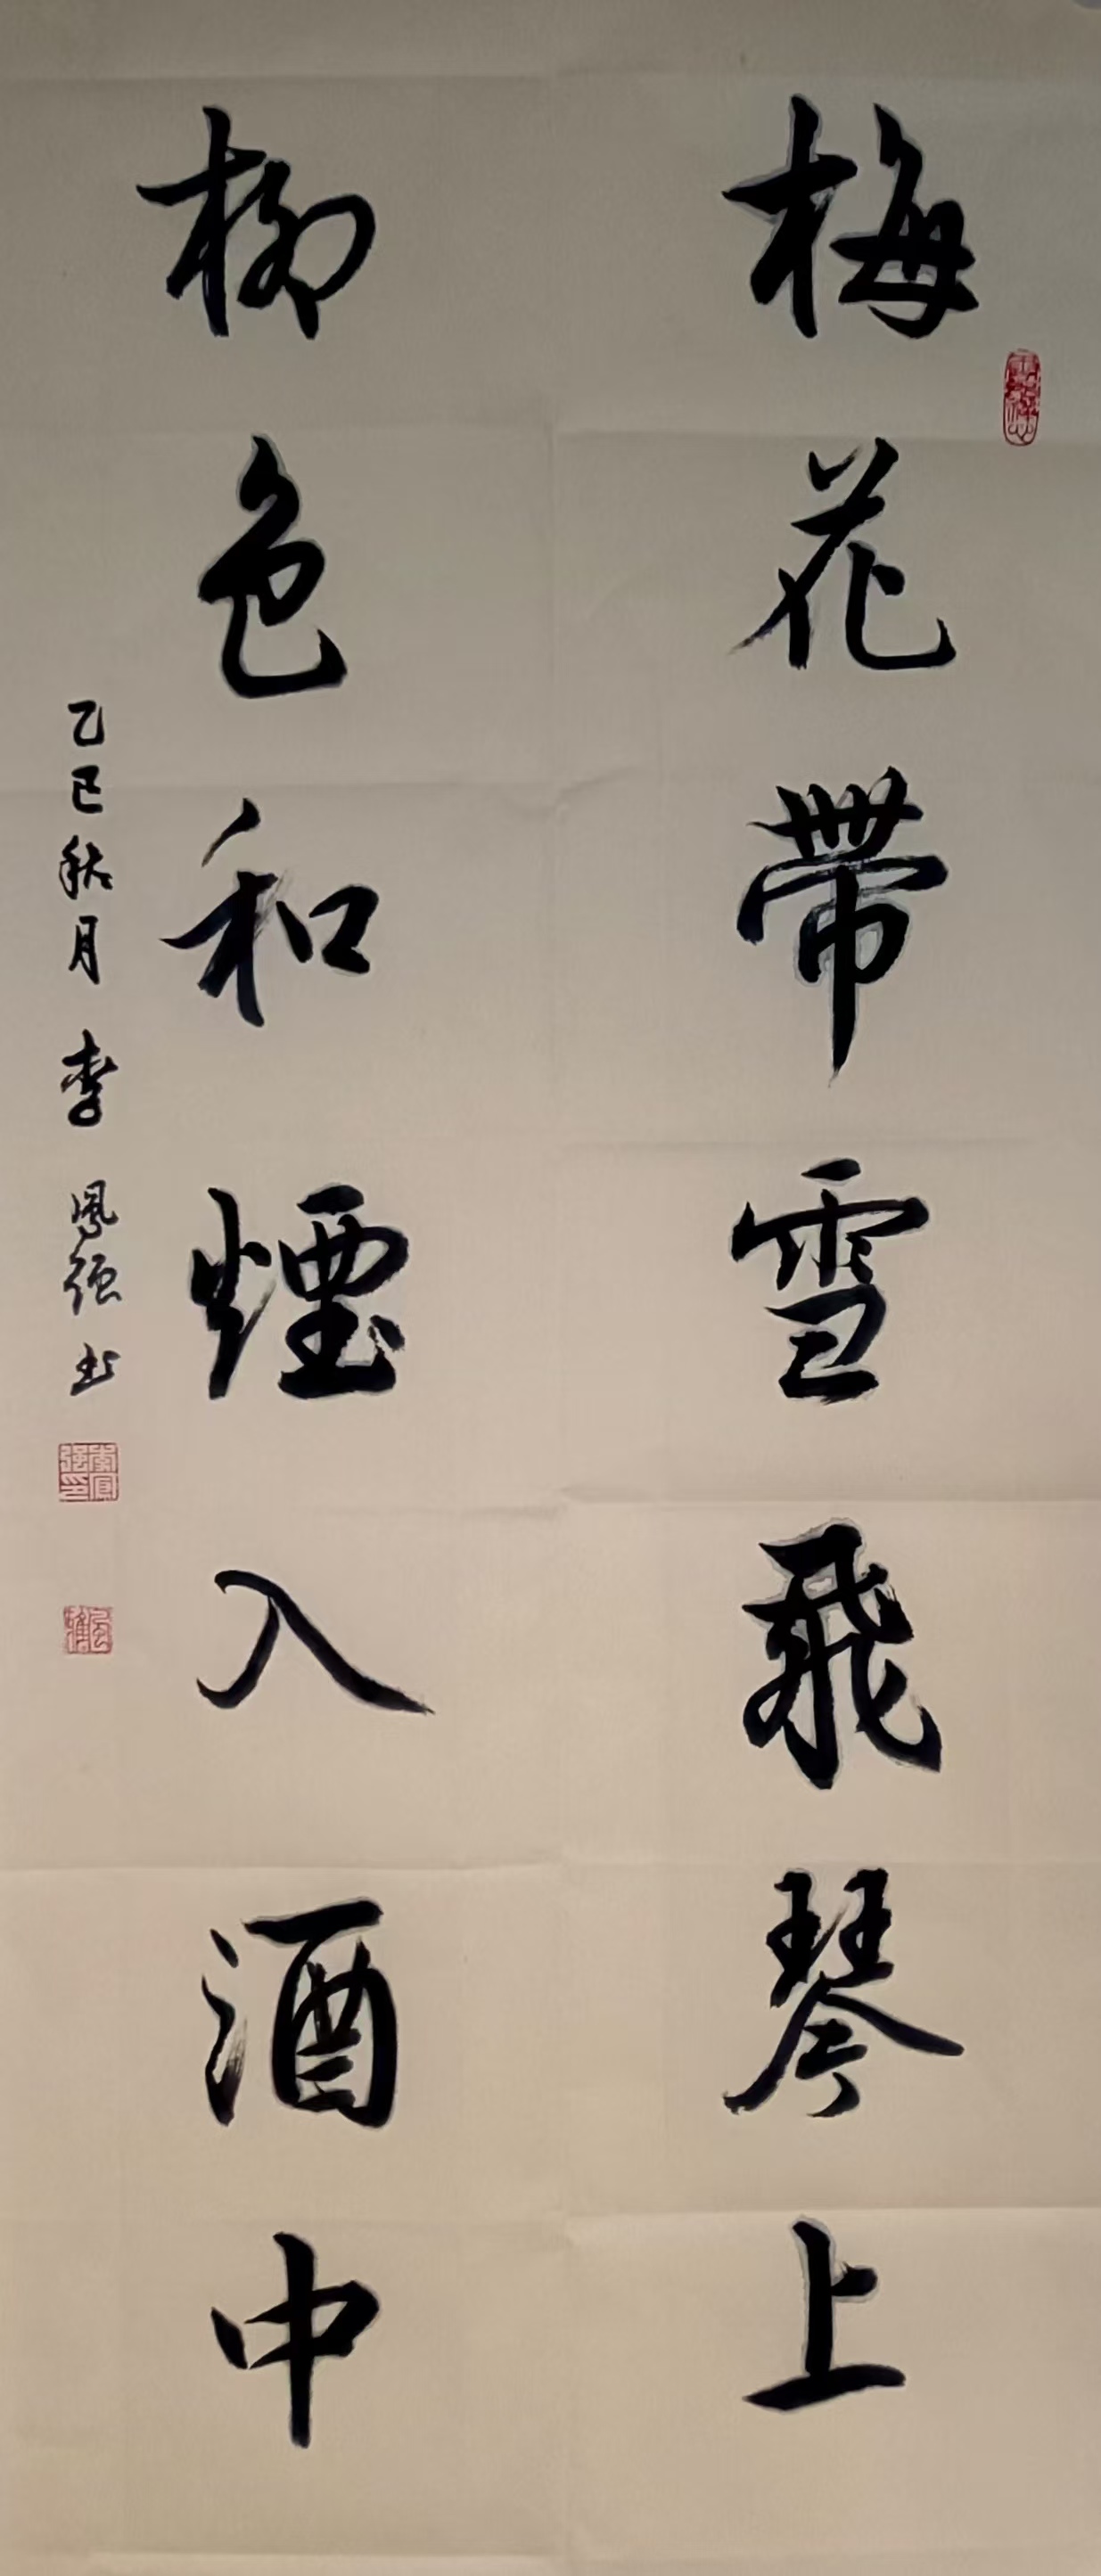 梅花帶雪飛琴上
柳色和煙入酒中
乙巳秋月 李鳳强书